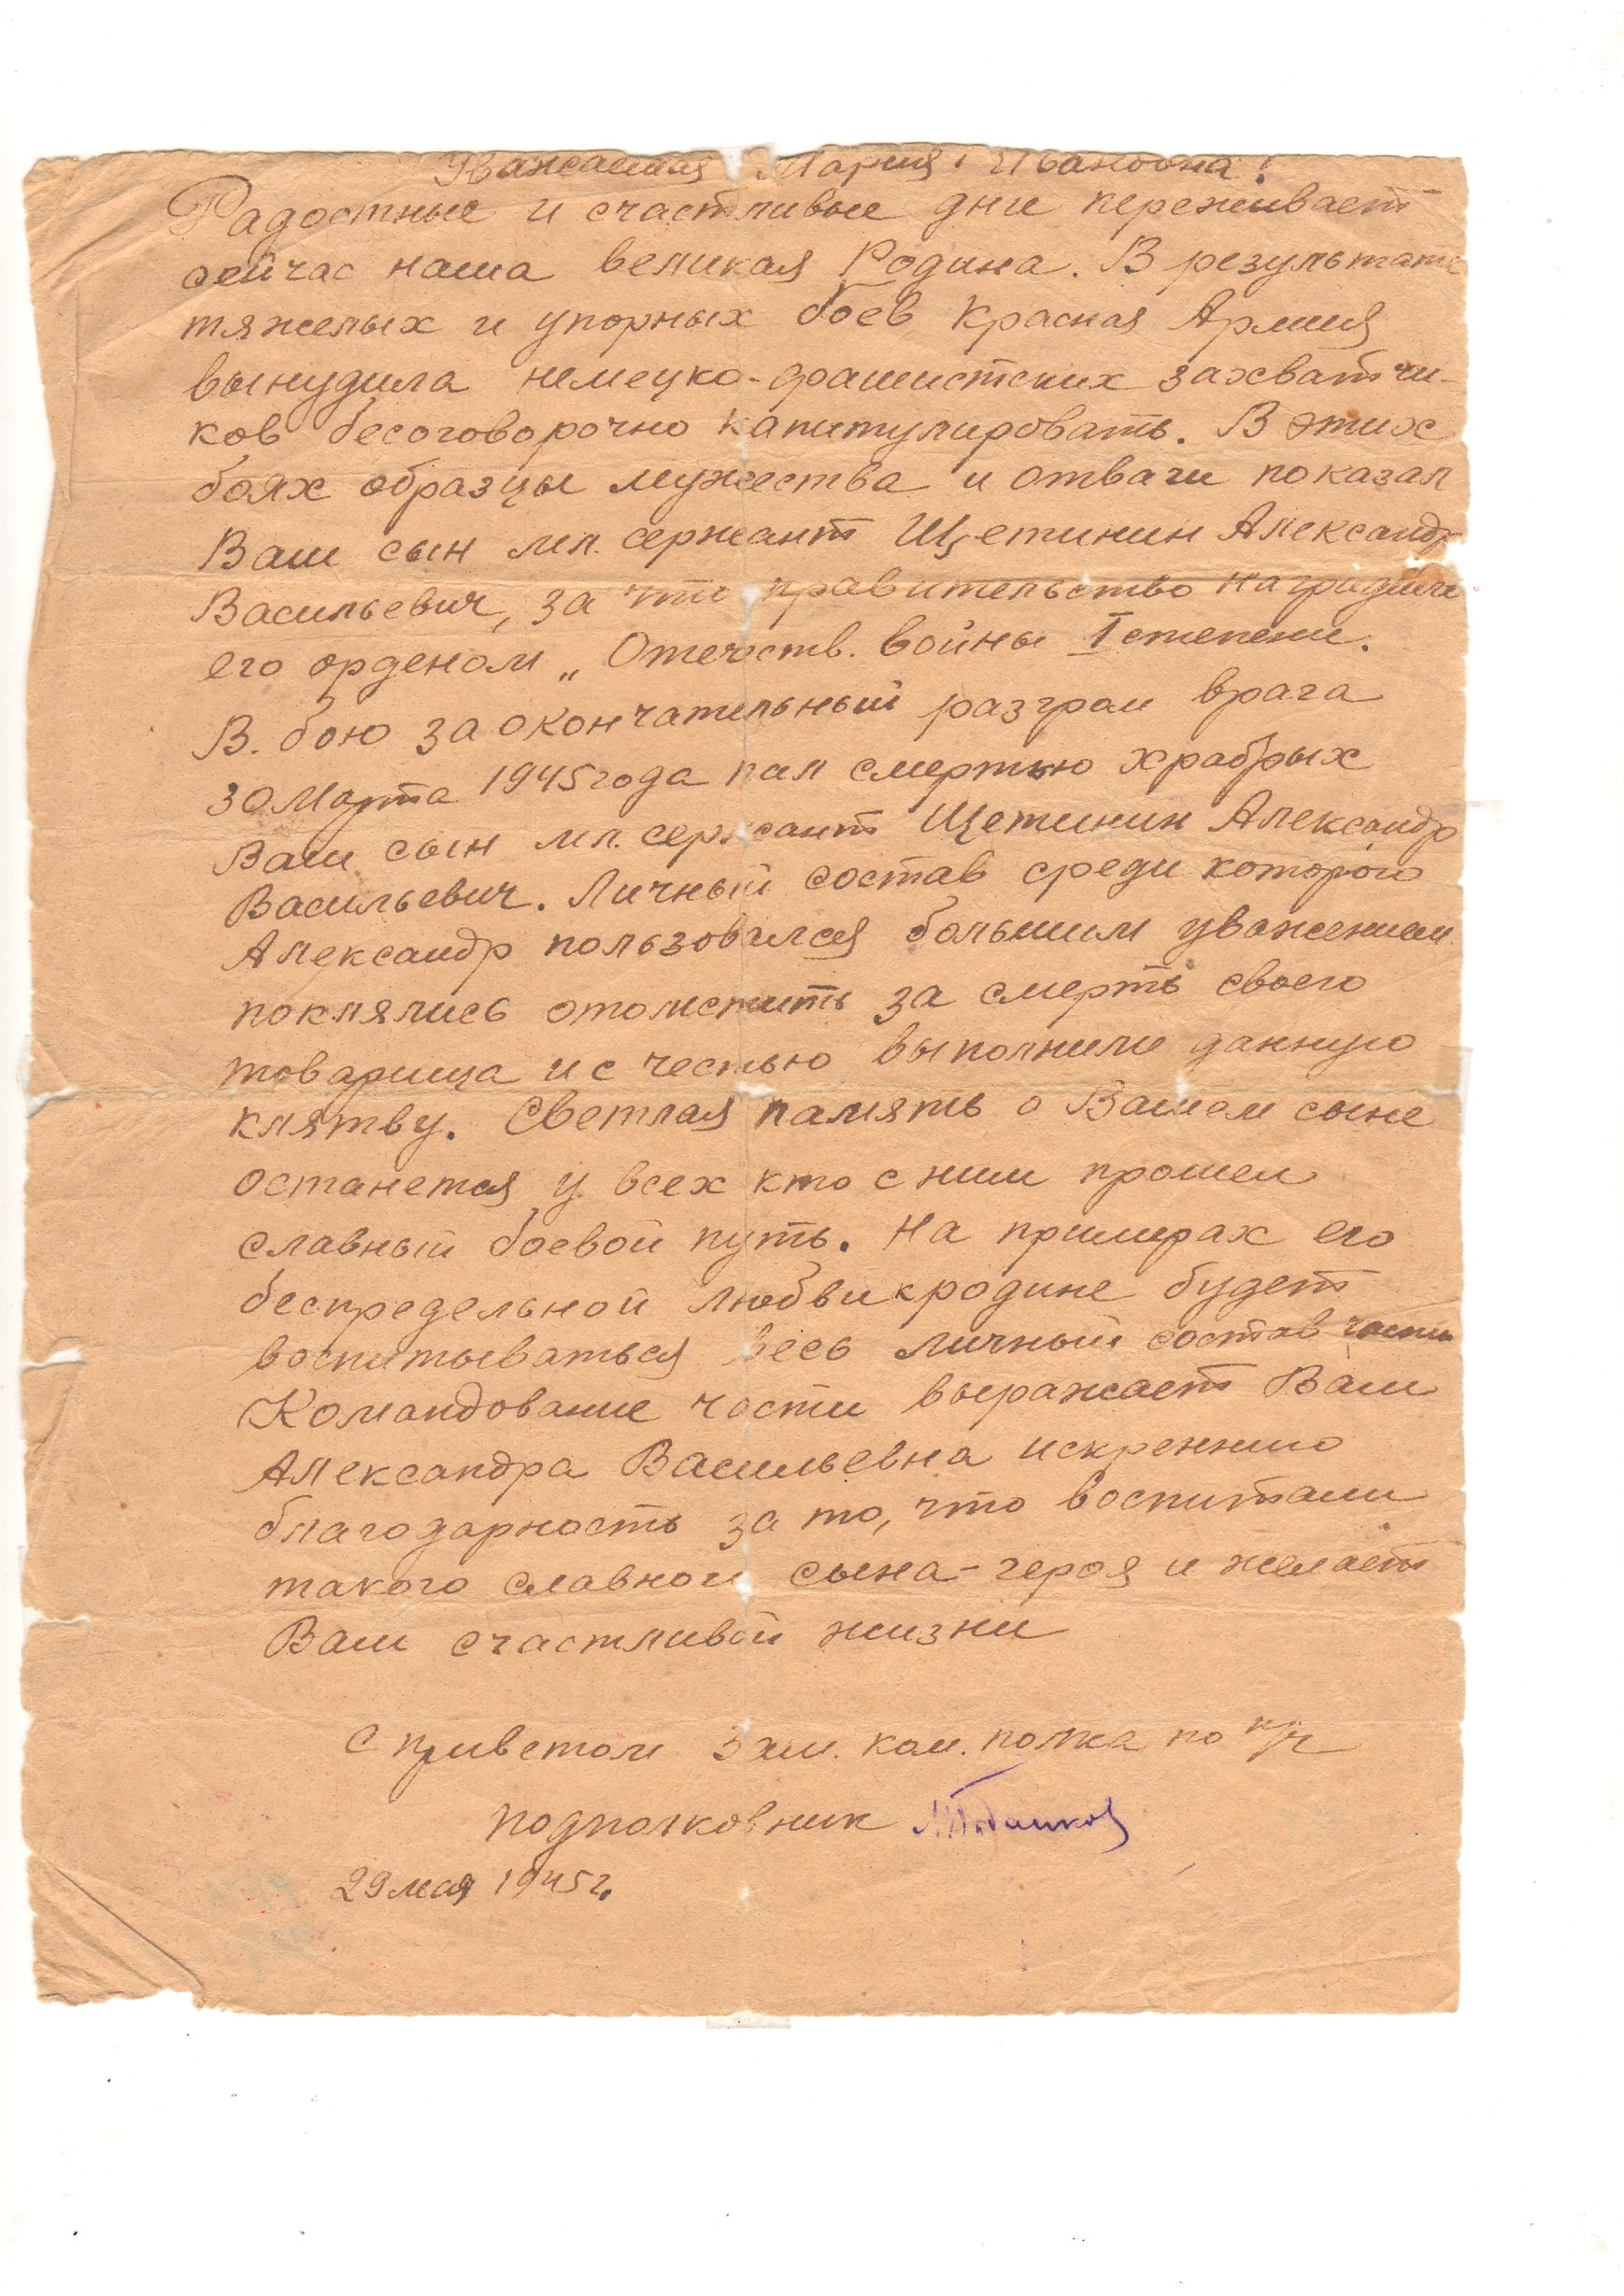 Уважаемая Мария Ивановна!
Радостные и счастливые дни переживает
сейчас наша великая Родина. В результате
тяжелых и упорных боев Красная Армия
вынудила немецко-фашистских захватчи-
ков бесоговорочно капитулировать. В этих
боях образцы мужества и отваги показал
Ваш сын мл. сержант Щетинин Александр
Васильевич, за что правительство наградило
его орденом „Отечеств. войны I степени.
В. бою за окончательный разгром врага
30 Марта 1945 года пал смертью храбрых
Ваш сын мл. сержант Щетинин Александр
Васильевич. Личный состав среди которого
Александр пользовался большим уважением
поклялись отомстить за смерть своего
товарища и с честью выполнили данную
клятву. Светлая память о Вашем сыне
останется у всех кто с ним прошел
славный боевой путь. На примерах его
беспредельной любви к родине будет
воспитываться весь личный состав части
Командование части выражает Вам
Александра Васильевна искреннию
благодарность за то, что воспитали
такого славного сына-героя и желает
Вам счастливой жизни
С приветом Зам. ком. полка по п/ч
подполковник
29 мая 1945 г.